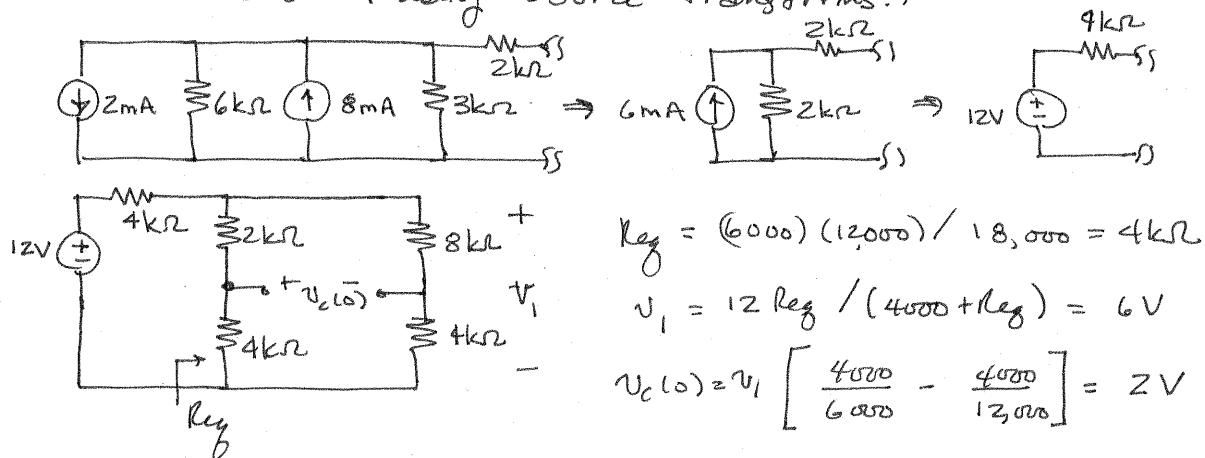 using source transforms:
2mA 6kΩ 8mA 3kΩ 2kΩ ⇒ 6mA 2kΩ 2kΩ ⇒ 12V 4kΩ
12V 4kΩ 2kΩ 8kΩ +
+ v_c(0) - v_1
4kΩ 4kΩ -
Req
Req = (6000)(12,000) / 18,000 = 4kΩ
v_1 = 12 Req / (4000 + Req) = 6V
v_c(0) = v_1 [ 4000/6000 - 4000/12,000 ] = 2V